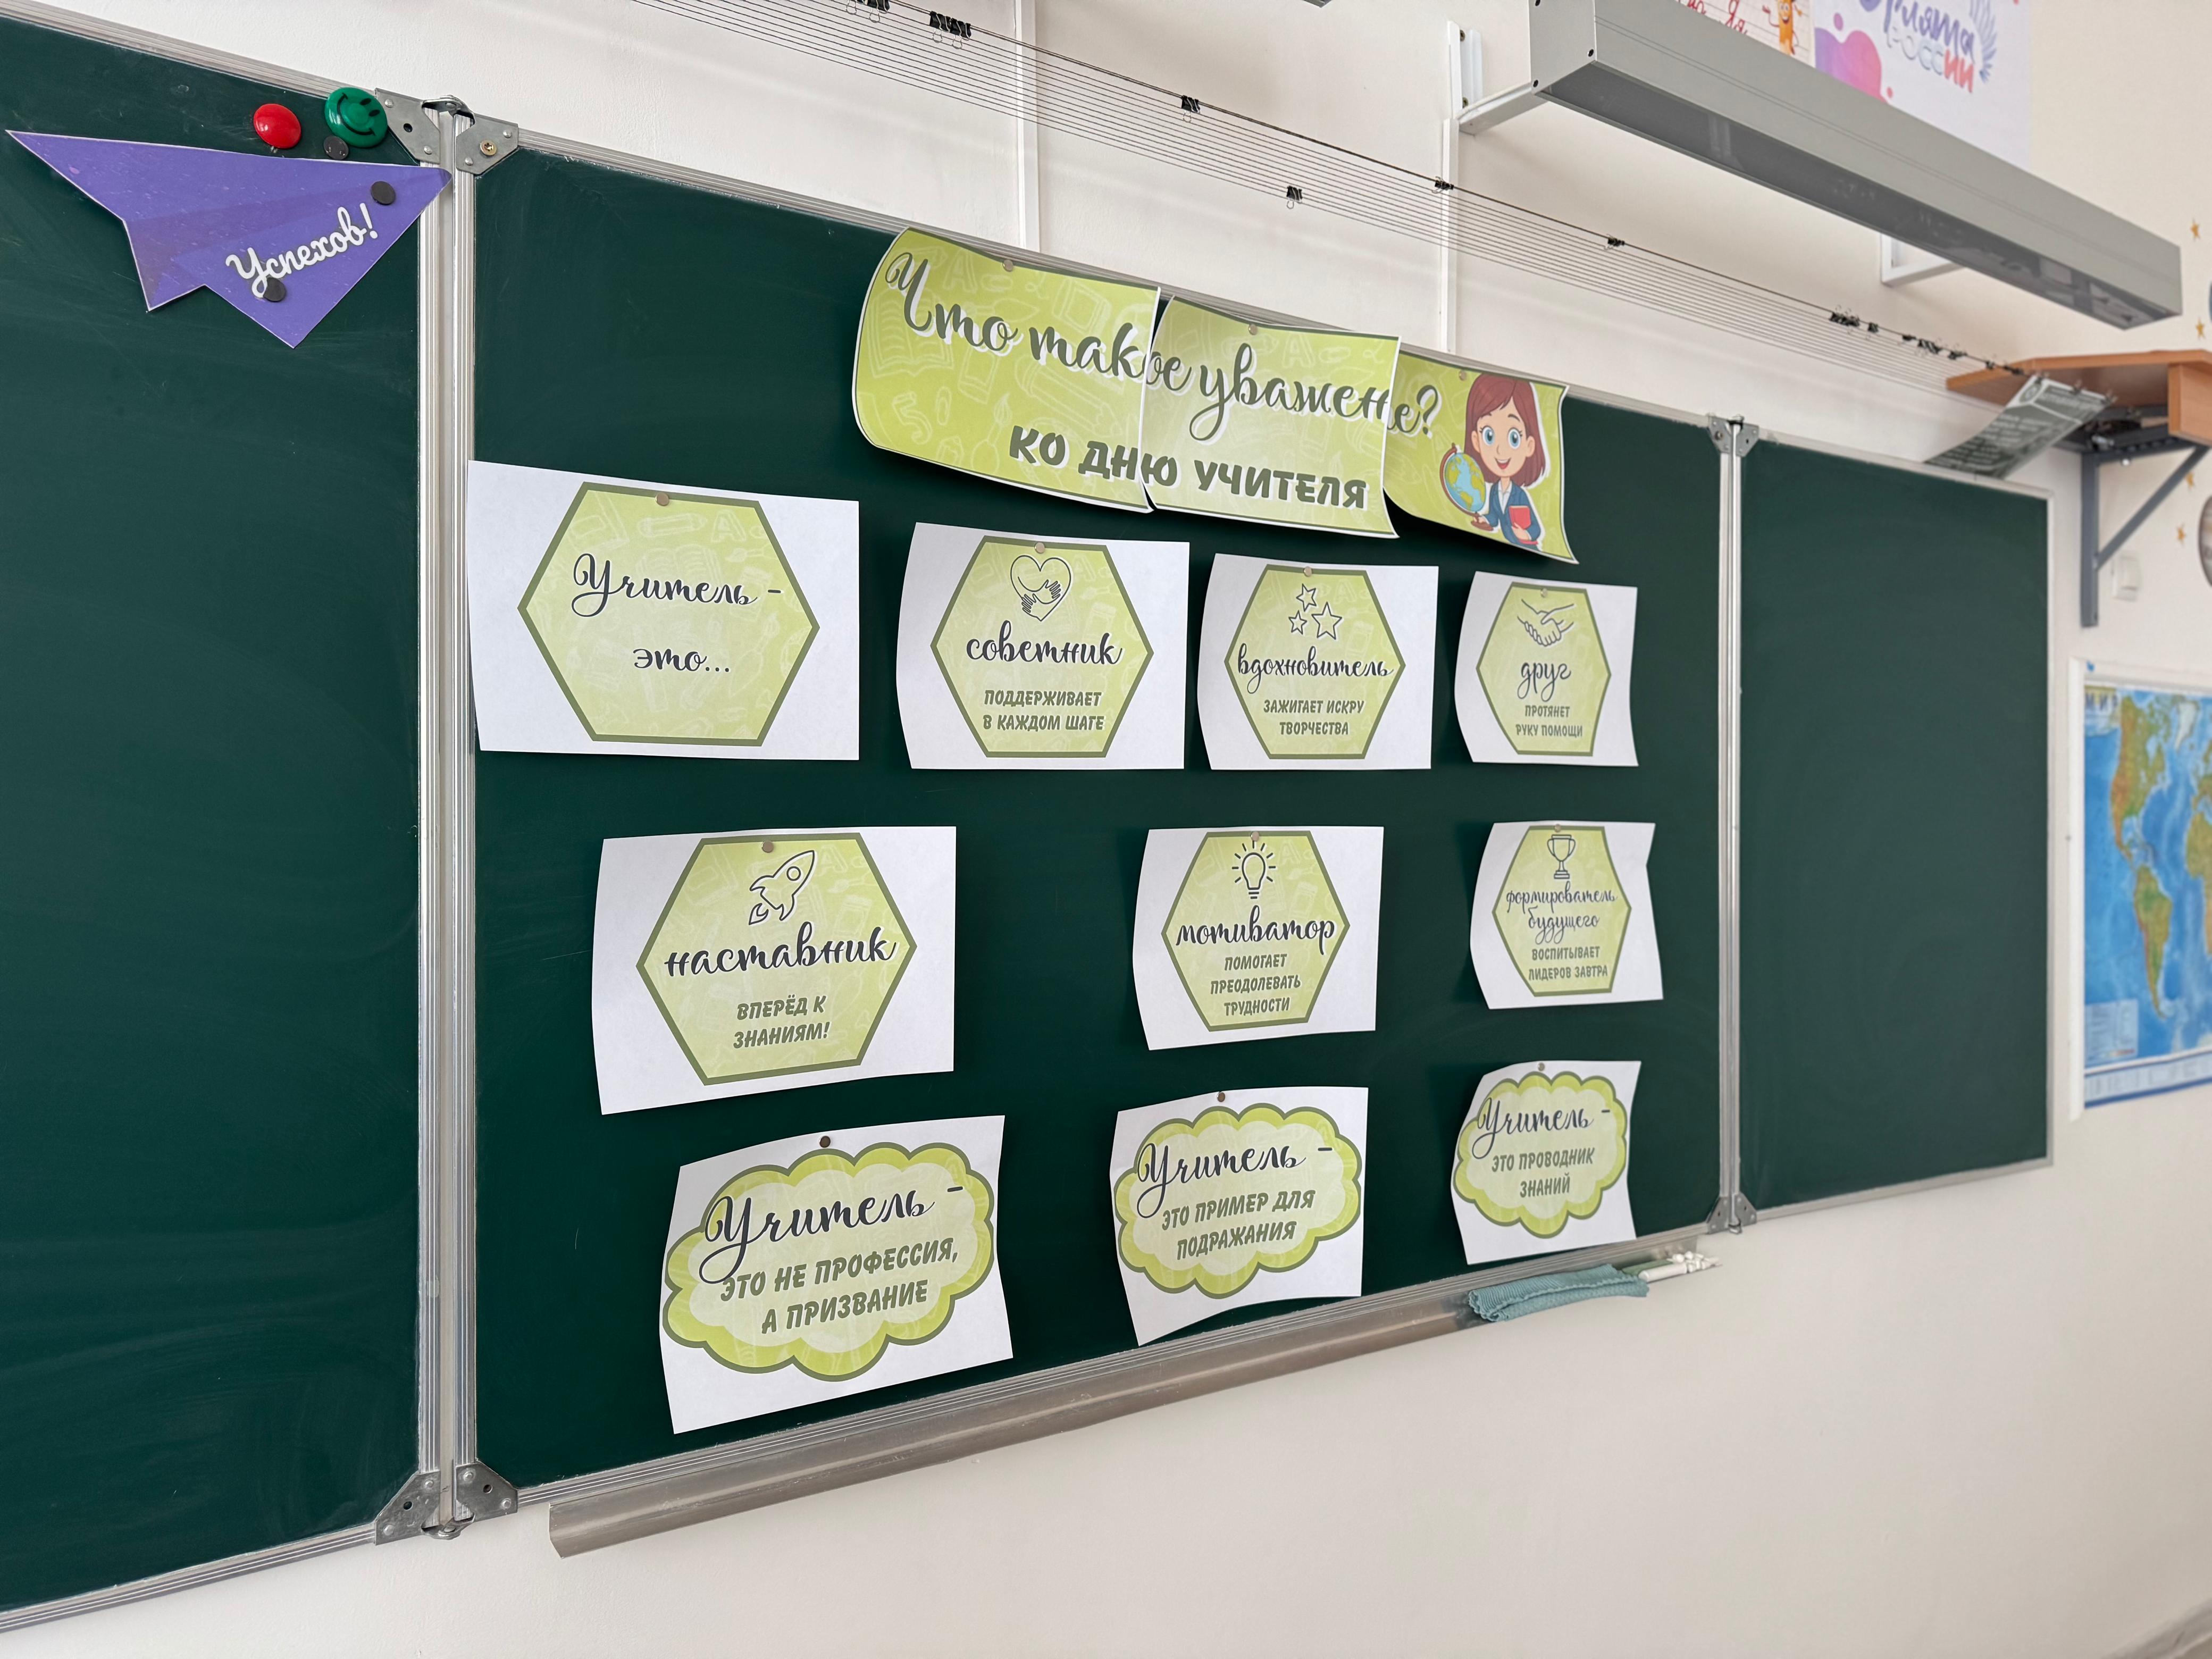 Орлята
России
Успехов!
Что такое уважене?
КО ДНЮ УЧИТЕЛЯ
Учитель -
это...
советник
ПОДДЕРЖИВАЕТ
В КАЖДОМ ШАГЕ
вдохновитель
ЗАЖИГАЕТ ИСКРУ
ТВОРЧЕСТВА
друг
ПРОТЯНЕТ
РУКУ ПОМОЩИ
наставник
ВПЕРЁД К
ЗНАНИЯМ!
мотиватор
ПОМОГАЕТ
ПРЕОДОЛЕВАТЬ
ТРУДНОСТИ
формирователь
будущего
ВОСПИТЫВАЕТ
ЛИДЕРОВ ЗАВТРА
Учитель -
ЭТО НЕ ПРОФЕССИЯ,
А ПРИЗВАНИЕ
Учитель -
ЭТО ПРИМЕР ДЛЯ
ПОДРАЖАНИЯ
Учитель -
ЭТО ПРОВОДНИК
ЗНАНИЙ